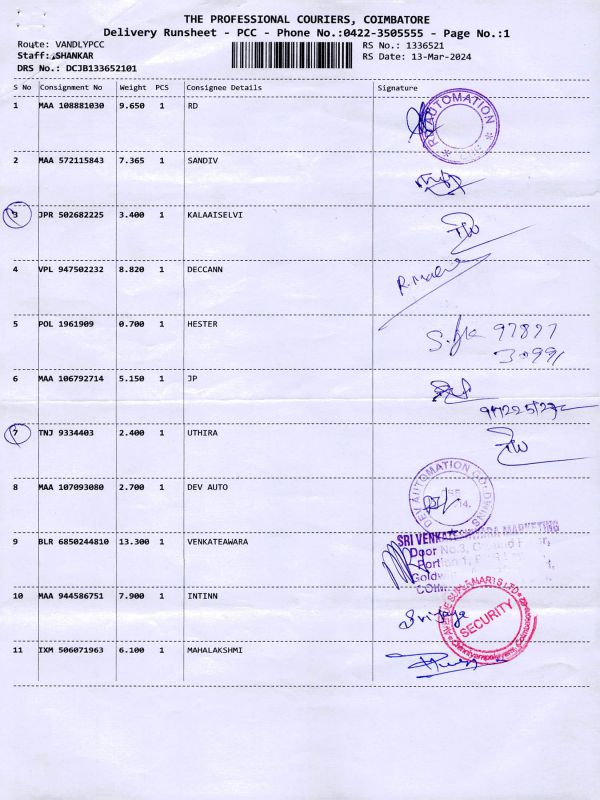 THE PROFESSIONAL COURIERS, COIMBATORE
Delivery Runsheet - PCC - Phone No.:0422-3505555 - Page No.:1
Route: VANDLYPCC RS No.: 1336521
Staff: SHANKAR RS Date: 13-Mar-2024
DRS No.: DCJB133652101
S No Consignment No Weight PCS Consignee Details Signature
1 MAA 108881030 9.650 1 RD
AUTOMATION
2 MAA 572115843 7.365 1 SANDIV
3 JPR 502682225 3.400 1 KALAAISELVI
4 VPL 947502232 8.820 1 DECCANN
5 POL 1961909 0.700 1 HESTER 97897
30991
6 MAA 106792714 5.150 1 JP
7 TNJ 9334403 2.400 1 UTHIRA
8 MAA 107093080 2.700 1 DEV AUTO
DEV AUTOMATION
9 BLR 6850244810 13.300 1 VENKATEAWARA
SRI VENKATESHWARA MARKETING
Door No.3,
Portion 1,
10 MAA 944586751 7.900 1 INTINN
SECURITY
11 IXM 506071963 6.100 1 MAHALAKSHMI